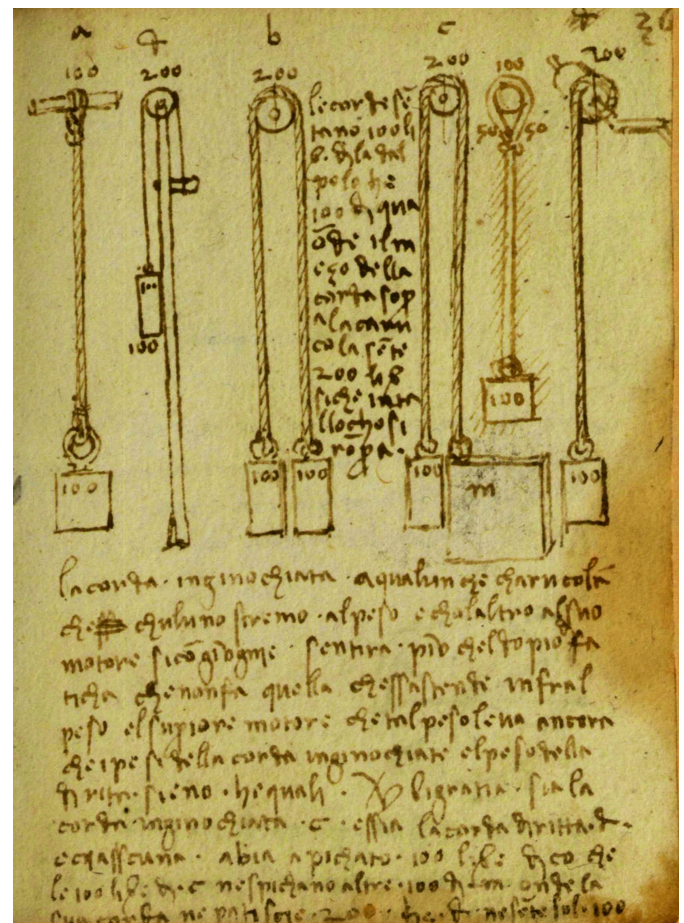 a
b
c
26
100
200
200
200
100
200
le corde sē
tano 100 li
b. di la dal
polo he
100 di qua
ōde il m
ezo della
corda sop
a la caru
cola sēte
200 lib
siche ī tal
locho si
ropa.
50 50
100
100
100
100 100 100 m 100
100
la corda · inginochiata · a qualunche charucola
che chuluno stremo · al peso e cholaltro al suo
motore si cōgiōgnie · sentira · piv chel dopio fa
ticha che non fa quella chessasstende infral
peso el supiore motore che tal peso leva ancora
che i pesi della corda inginochiate el peso della
diritta sieno · hequali · gratia · sia la
corda inginochiata · c · essia la corda diritta · d ·
e ciasscuna · abia apichato · 100 libe di co che
le 100 libe di · c · nespichano altre · 100 di · m · onde la
sua corda ne patisscie · 200 · d · ne sēte sol · 100